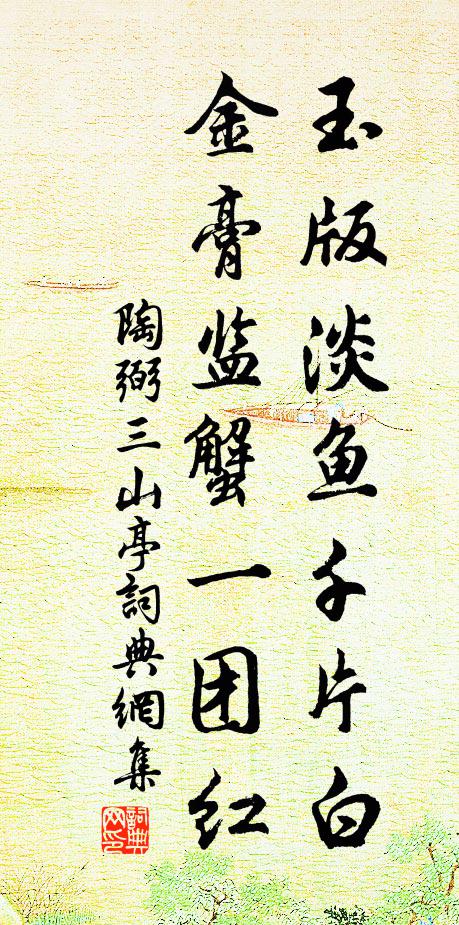 玉版淡鱼千片白
金膏监蟹一团红
陶弼三山亭詞典網集
詞典网印